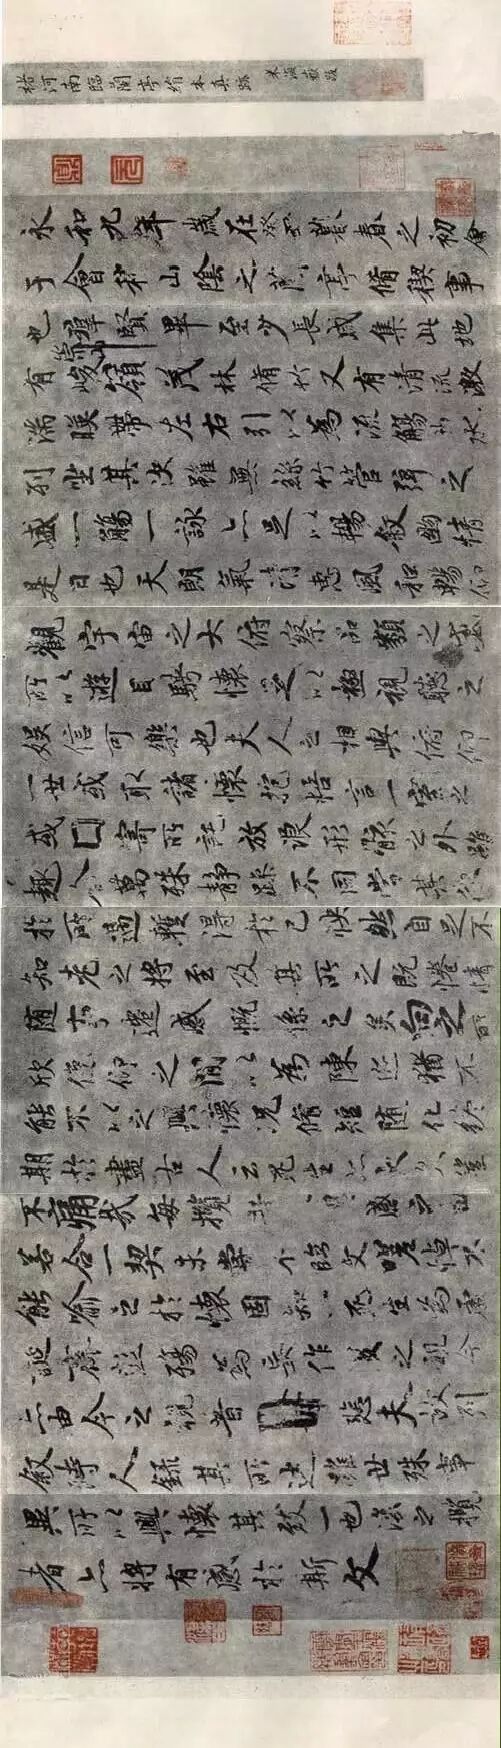 褚河南臨蘭亭絹本真跡 米海嶽跋
永和九年歲在癸丑暮春之初會
于會稽山陰之蘭亭脩稧事
也群賢畢至少長咸集此地
有崇山峻領茂林脩竹又有清流激
湍暎帶左右引以為流觴曲水
列坐其次雖無絲竹管弦之
盛一觴一詠亦足以暢敘幽情
是日也天朗氣清惠風和暢仰
觀宇宙之大俯察品類之盛
所以遊目騁懷足以極視聽之
娛信可樂也夫人之相與俯仰
一世或取諸懷抱悟言一室之
或因寄所託放浪形骸之外雖
趣舍萬殊靜躁不同當其欣
於所遇暫得於己快然自足不
知老之將至及其所之既惓情
隨事遷感慨係之矣向之所
欣俛仰之閒以為陳迹猶不
能不以之興懷況脩短隨化終
期於盡古人云死生亦大矣豈
不痛哉每攬昔興感之由
若合一契未嘗不臨文嗟悼不
能喻之於懷固知死生為虛
誕齊彭殤為妄作後之視今
亦由今之視昔悲夫故列
敘時人錄其所述雖世殊事
異所以興懷其致一也後之攬
者亦將有感於斯文